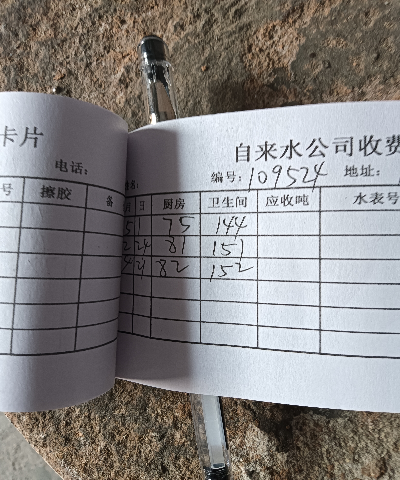 卡片
电话：
号 擦胶 备
自来水公司收费
编号：109524 地址：
日 厨房 卫生间 应收吨 水表号
51 75 144
2 24 81 151
4 29 82 152